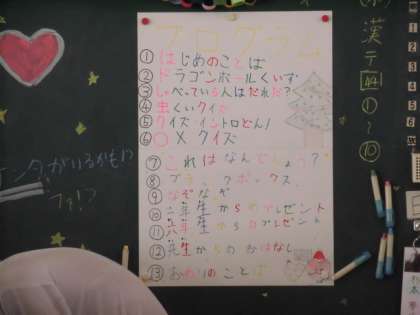 プログラム
① はじめのことば
② ドラゴンボールくいず
③ しゃべっている人はだれだ?
④ 虫くいクイズ
⑤ クイズ・イントロどん!
⑥ ○×クイズ
⑦ これはなんでしょう?
⑧ ブラックボックス
⑨ なぞなぞ
⑩ 二年生からのプレゼント
⑪ 六年生からのプレゼント
⑫ 先生からのおはなし
⑬ おわりのことば
サンタがいるかも!?
漢テ
44
①
~
⑩